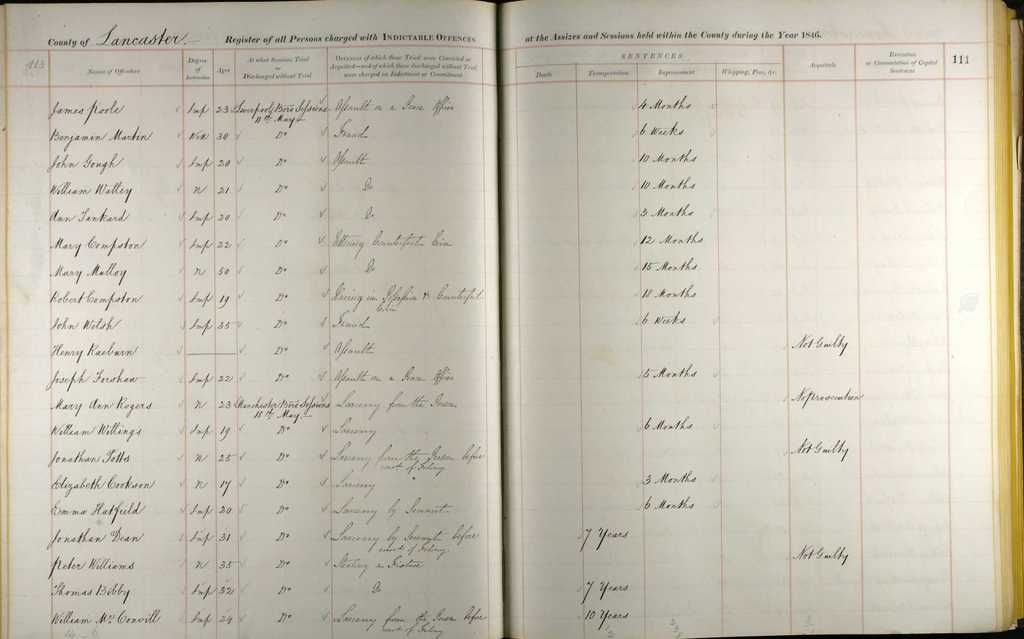 County of Lancaster.— Register of all Persons charged with INDICTABLE OFFENCES at the Assizes and Sessions held within the County during the Year 1846.
113 111
Names of Offenders Degree of Instruction Ages At what Sessions Tried or Discharged without Trial OFFENCES of which those Tried were Convicted or Acquitted—and of which those discharged without Trial were charged on Indictment or Commitment. SENTENCES Acquittals Execution or Commutation of Capital Sentences
Death Transportation Imprisonment Whipping, Fine, &c.
James Poole Imp 23 Liverpool Boro Sessions 11th May— Assault on a Peace Officer 4 Months
Benjamin Martin Well 30 Do Fraud 6 Weeks
John Gough Imp 20 Do Assault 10 Months
William Walley N 21 Do Do 10 Months
Ann Tankard Imp 20 Do Do 3 Months
Mary Compston Imp 22 Do Uttering Counterfeit Coin 12 Months
Mary Malloy N 50 Do Do 15 Months
Robert Compston Imp 19 Do Having in Possession Counterfeit Coin 18 Months
John Welsh Imp 35 Do Fraud 6 Weeks
Henry Raeburn Do Assault Not Guilty
Joseph Forshaw Imp 22 Do Assault on a Peace Officer 5 Months
Mary Ann Rogers N 23 Manchester Boro Sessions 11th May— Larceny from the Person No prosecution
William Willings Imp 19 Do Larceny 6 Months
Jonathan Potts N 25 Do Larceny from the Person before convt of Felony Not Guilty
Elizabeth Cookson N 17 Do Larceny 3 Months
Emma Hatfield Imp 20 Do Larceny by Servant 6 Months
Jonathan Dean Imp 31 Do Larceny by Servant before convt of Felony 7 Years
Peter Williams N 35 Do Stealing a Fixture Not Guilty
Thomas Bibby Imp 32 Do Do 7 Years
William Mc Convill Imp 24 Do Larceny from the Person before convt of Felony 10 Years